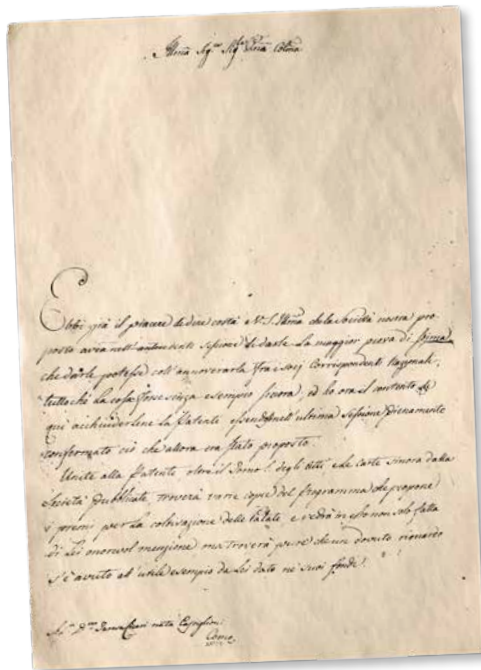 Illma Sigra Sigra Pna Colma
Ebbi già il piacere di dire costà a V.S. Illma che la Società nostra pro-
posto avea nell'antecedenti Sessioni di darle la maggior prova di stima
che darle potesse coll'annoverarla fra i suoi Corrispondenti Nazionali,
tuttoché la cosa fosse senza esempio finora, ed ho ora il contento di
qui acchiuderlene la Patente essendosi nell'ultima Sessione pienamente
confermato ciò che allora era stato proposto.
Unite alla Patente, oltre il Tomo I. degli Atti e le Carte sinora dalla
Società pubblicate, troverà varie copie del Programma che propone
i premi per la coltivazione delle Patate, e vedrà in esso non sol fatta
di Lei onorevol menzione ma troverà pure che un dovuto riguardo
s'è avuto all'utile esempio da Lei dato ne' suoi fondi.
Sra Da Teresa Ciceri nata Castiglioni
Como